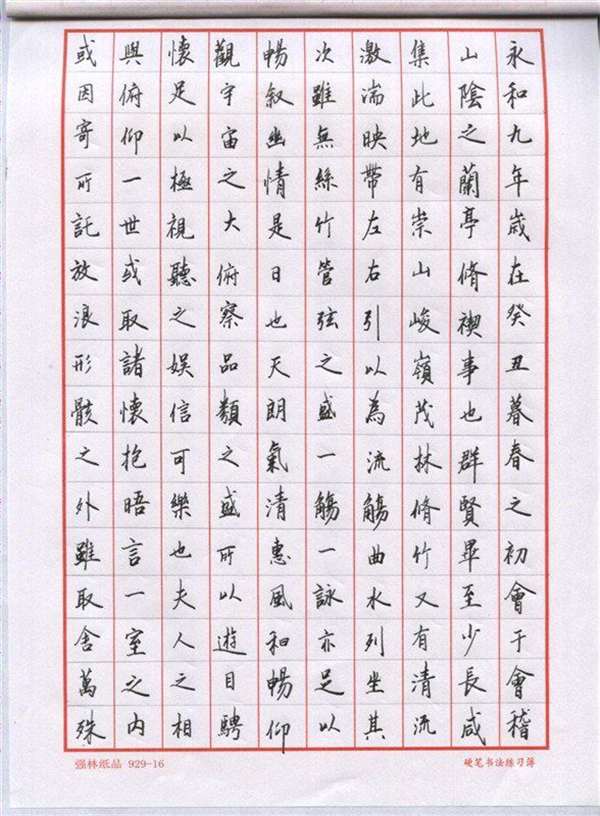 永和九年歲在癸丑暮春之初會于會稽
山陰之蘭亭脩禊事也群賢畢至少長咸
集此地有崇山峻嶺茂林脩竹又有清流
激湍映帶左右引以為流觴曲水列坐其
次雖無絲竹管弦之盛一觴一詠亦足以
暢敘幽情是日也天朗氣清惠風和暢仰
觀宇宙之大俯察品類之盛所以遊目騁
懷足以極視聽之娱信可樂也夫人之相
與俯仰一世或取諸懷抱晤言一室之内
或因寄所託放浪形骸之外雖取舍萬殊
强林纸品 929-16
硬笔书法练习簿